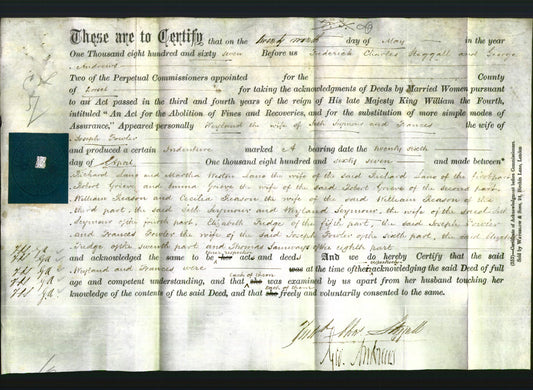 These are to Certify that on the twenty ninth day of May in the year
One Thousand eight hundred and sixty seven Before us Frederick Charles Steggall and George
Andrews
Two of the Perpetual Commissioners appointed for the County
of Dorset for taking the acknowledgments of Deeds by Married Women pursuant
to an Act passed in the third and fourth years of the reign of His late Majesty King William the Fourth,
intituled "An Act for the Abolition of Fines and Recoveries, and for the substitution of more simple modes of
Assurance," Appeared personally Weyland the wife of Seth Seymour and Frances the wife of
Joseph Fowler
and produced a certain Indenture marked A bearing date the twenty sixth
day of April One thousand eight hundred and sixty seven and made between
Richard Lane and Martha Lane the wife of the said Richard Lane of the first part
Robert Grieve and Emma Grieve the wife of the said Robert Grieve of the second part
William Reason and Cecilia Reason the wife of the said William Reason of the
third part, the said Seth Seymour and Weyland Seymour the wife of the said Seth
Seymour of the fourth part, Elizabeth Fudge of the fifth part, the said Joseph Fowler
and Frances Fowler the wife of the said Joseph Fowler of the sixth part, the said
Fudge of the seventh part and Thomas Samways of the eighth part
and acknowledged the same to be their respective acts and deeds And we do hereby Certify that the said
Weyland and Frances were was at the time of their respectively acknowledging the said Deed of full
age and competent understanding, and that each of them she was examined by us apart from her husband touching her
knowledge of the contents of the said Deed, and that each of them she freely and voluntarily consented to the same.
Fredk Chas Steggall
Geo. Andrews